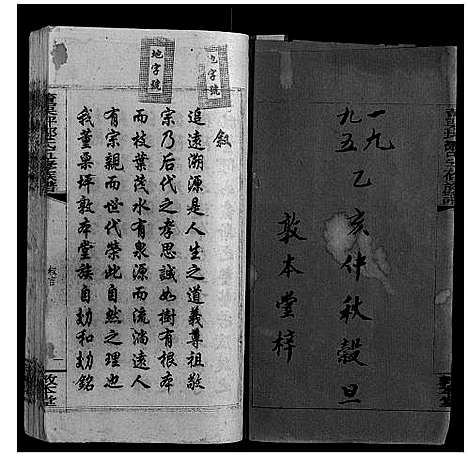 一九九五 乙亥仲秋穀旦
敦本堂梓
地字號
字號
敘
追遠溯源是人生之道義尊祖敬
宗乃后代之孝思誠如樹有根本
而枝葉茂水有泉源而流滿遠人
有宗親而世代榮此自然之理也
我董巢坪敦本堂族自幼和幼銘
敦本堂